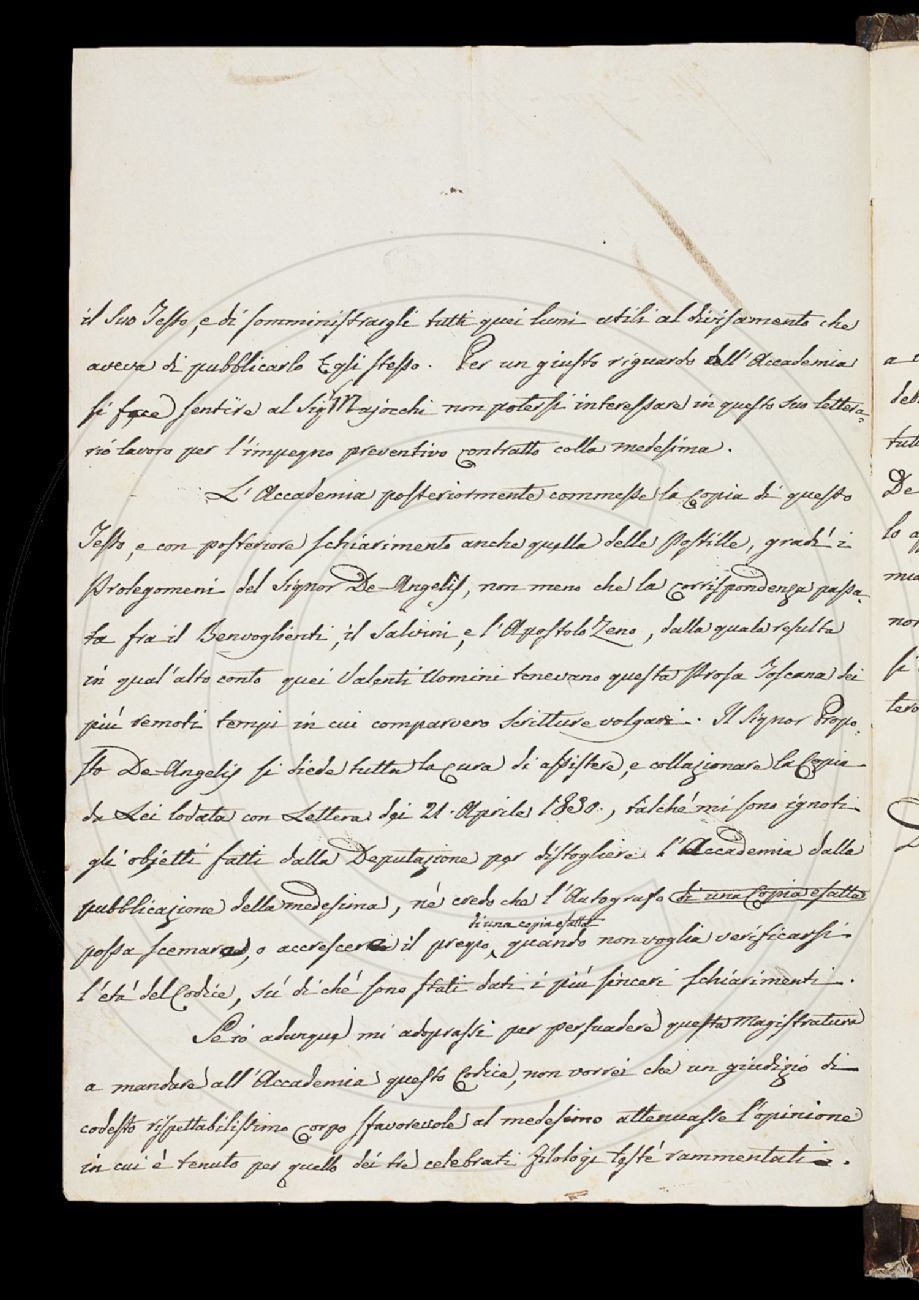 il Suo Testo, e di somministrargli tutti quei lumi utili al divisamento che
aveva di pubblicarlo Egli stesso. Per un giusto riguardo dell'Accademia
si fece sentire al Sigr Majocchi non potersi interessare in questo suo lettera=
rio lavoro per l'impegno preventivo contratto colla medesima.
L'Accademia posteriormente commesse la Copia di questo
Testo, e con posteriore schiarimento anche quella delle Postille, gradì i
Prolegomeni del Signor De-Angelis, non meno che la corrispondenza passa=
ta fra il Benvoglienti, il Salvini, e l'Apostolo Zeno, dalla quale resulta
in qual'alto conto quei Valenti Uomini tenevano questa Prosa Toscana dei
più remoti tempi in cui comparvero Scritture volgari. Il Signor Propo=
sto De-Angelis si diede tutta la cura di assistere, e collazionare la Copia
da Lei lodata con Lettera dei 21. Aprile 1830., talché mi sono ignoti
gli objetti fatti dalla Deputazione per distogliere l'Accademia dalla
pubblicazione della medesima, né credo che l'Autografo di una Copia esatta
di una copia esatta
possa scemare, o accrescere il pregio, quando non voglia verificarsi
l'età del Codice, sù di ché sono stati dati i più sinceri schiarimenti.
Se io adunque mi adoprassi per persuadere questa Magistratura
a mandare all'Accademia questo Codice, non vorrei che un giudizio di
codesto rispettabilissimo corpo sfavorevole al medesimo attenuasse l'opinione
in cui è tenuto per quello dei tré celebrati filologi testé rammentati.